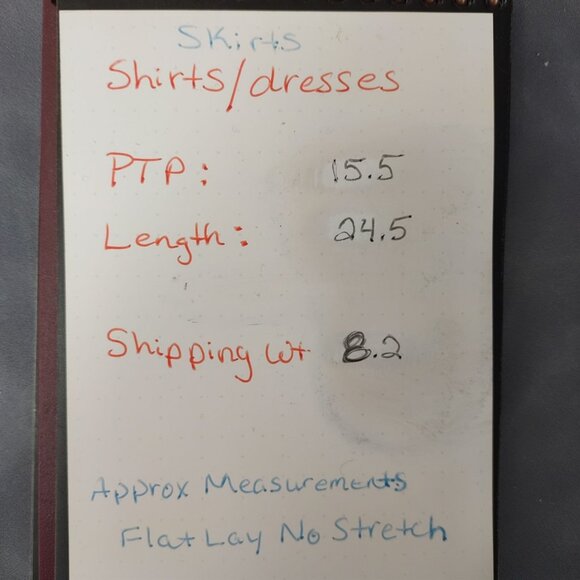 Skirts
Shirts/dresses
PTP: 15.5
Length: 24.5
Shipping wt 8.2
Approx Measurements
Flat Lay No Stretch